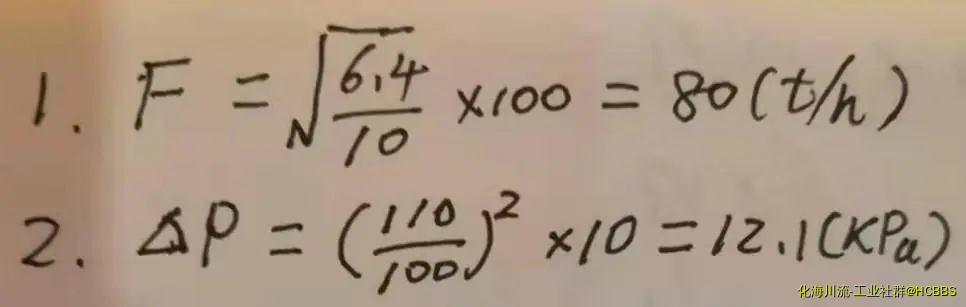 1. F = √(6.4/10) ×100 = 80(t/h)
2. ΔP = (110/100)² ×10 = 12.1(KPa)
化海川流-工业社群@HCBBS